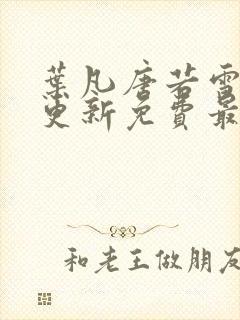 葉凡唐若雪
更新免費最
和老王做朋友